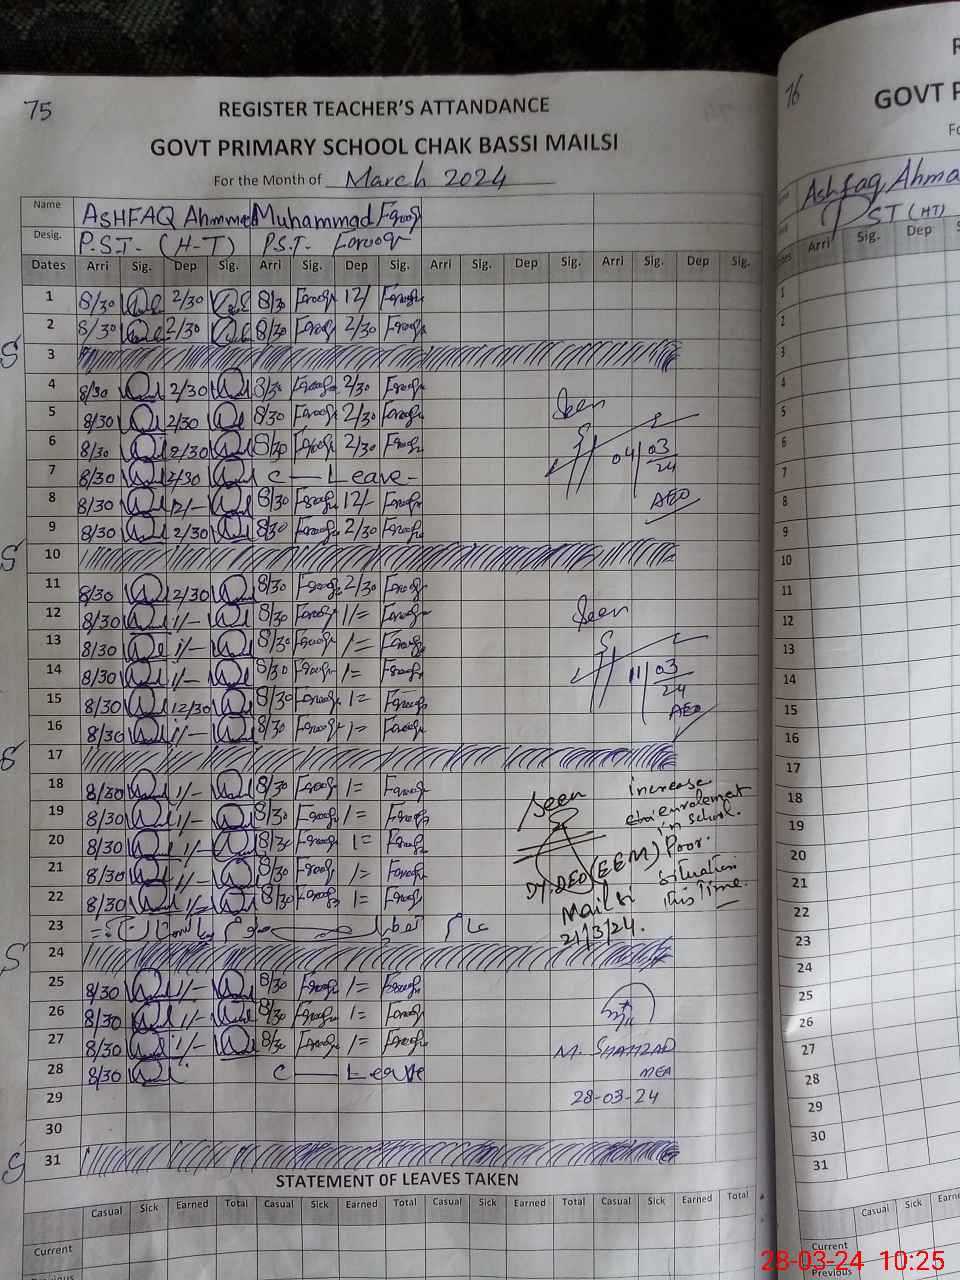 75
REGISTER TEACHER'S ATTANDANCE
GOVT PRIMARY SCHOOL CHAK BASSI MAILSI
For the Month of March 2024
Name ASHFAQ Ahmmed Muhammad Farooq
Desig. P.S.T. (H-T) P.S.T. Farooq
Dates Arri Sig. Dep Sig. Arri Sig. Dep Sig. Arri Sig. Dep Sig. Arri Sig. Dep Sig.
1 8/30 2/30 8/30 Farooq 12/ Farooq
2 8/30 2/30 8/30 Farooq 2/30 Farooq
S 3
4 8/30 2/30 8/30 Farooq 2/30 Farooq
Seen
5 8/30 2/30 8/30 Farooq 2/30 Farooq
6 8/30 2/30 8/30 Farooq 2/30 Farooq
04/03/24
7 8/30 2/30 C — Leave -
8 8/30 12/- 8/30 Farooq 12/- Farooq
AEO
9 8/30 2/30 8/30 Farooq 2/30 Farooq
S 10
11 8/30 2/30 8/30 Farooq 2/30 Farooq
12 8/30 1/- 8/30 Farooq 1/= Farooq
Seen
13 8/30 1/- 8/30 Farooq 1/= Farooq
14 8/30 1/- 8/30 Farooq 1/= Farooq
11/03/24
15 8/30 12/30 8/30 Farooq 1/= Farooq
AEO
16 8/30 1/- 8/30 Farooq 1/= Farooq
S 17
18 8/30 1/- 8/30 Farooq 1/= Farooq
Seen
increase
enrolement
in school.
19 8/30 1/- 8/30 Farooq 1/= Farooq
20 8/30 1/- 8/30 Farooq 1/= Farooq
Poor
situation
this time.
21 8/30 1/- 8/30 Farooq 1/= Farooq
Dy. DEO (EEM)
22 8/30 1/= 8/30 Farooq 1/= Farooq
Mailsi
21/3/24.
23
S 24
25 8/30 1/- 8/30 Farooq 1/= Farooq
26 8/30 1/- 8/30 Farooq 1/= Farooq
27 8/30 1/- 8/30 Farooq 1/= Farooq
M. SHAHZAD
28 8/30 C — Leave
MEA
29
28-03-24
30
S 31
STATEMENT OF LEAVES TAKEN
Casual Sick Earned Total Casual Sick Earned Total Casual Sick Earned Total Casual Sick Earned Total
Current
Previous
76
GOVT P
Ashfaq Ahma
PST (HT)
Arri Sig. Dep Sig.
1
2
3
4
5
6
7
8
9
10
11
12
13
14
15
16
17
18
19
20
21
22
23
24
25
26
27
28
29
30
31
Casual Sick Earne
Current
Previous
28-03-24 10:25